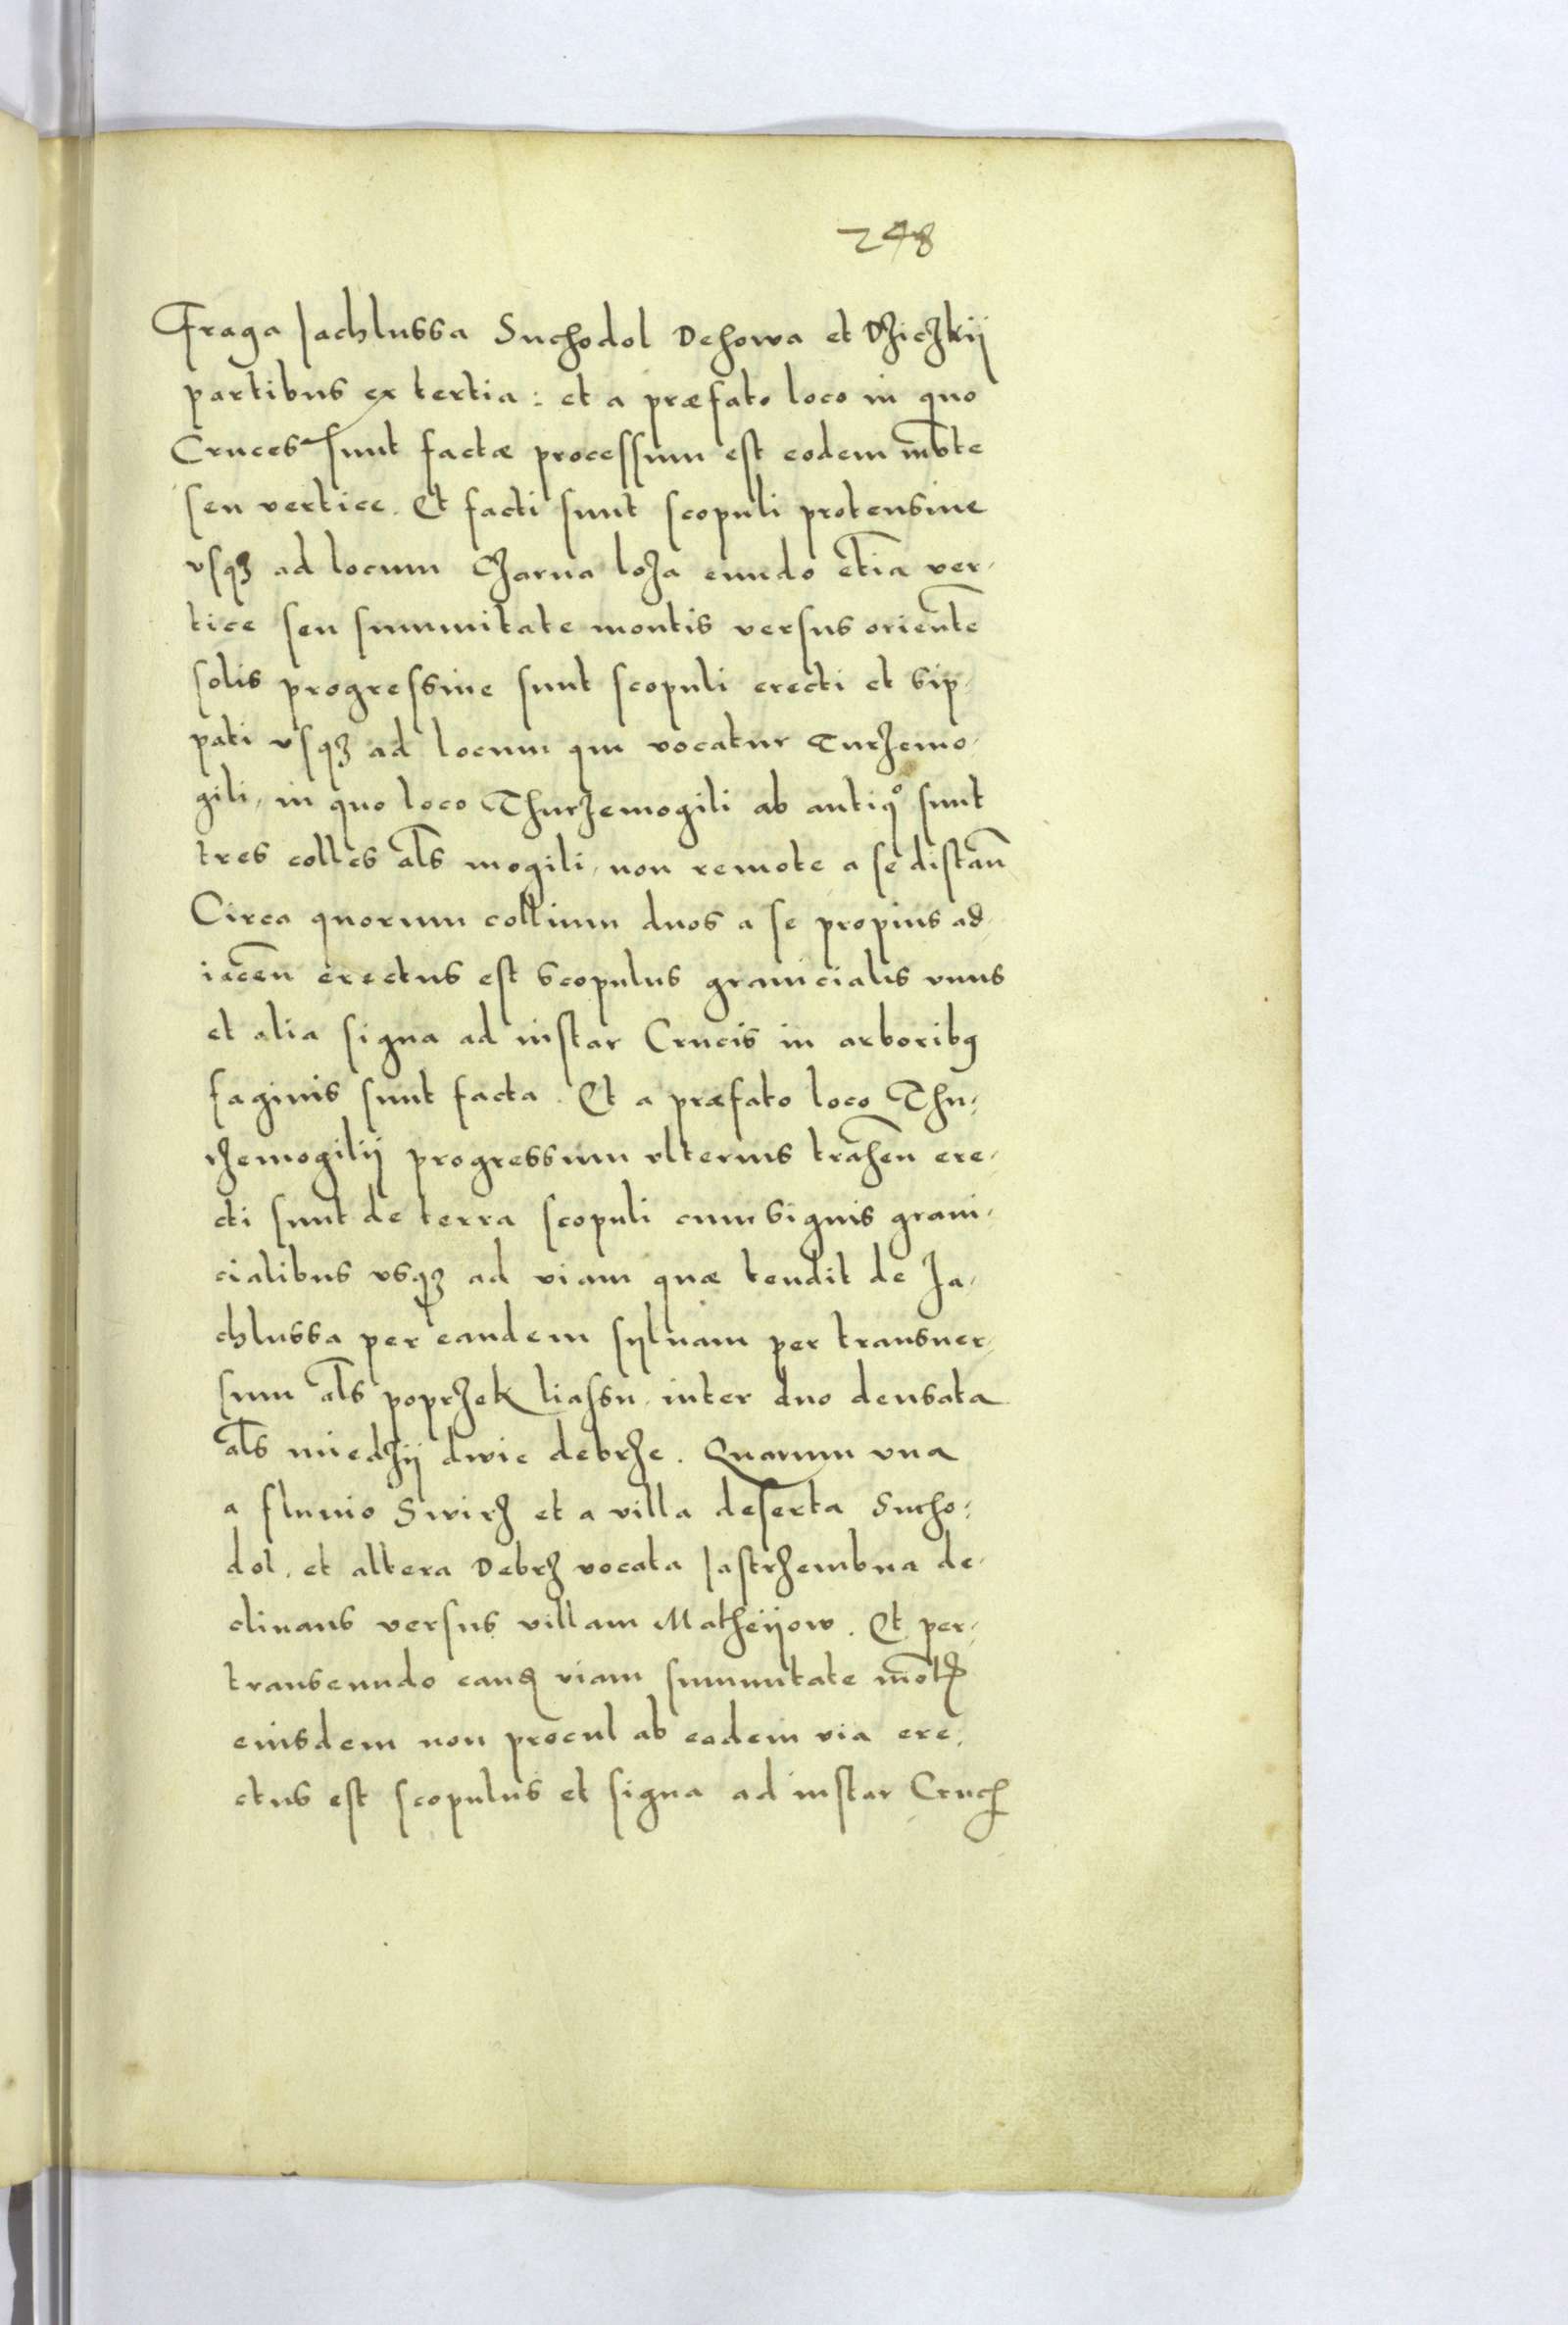 248
Fraga Jachlussa Suchodol Dehowa et Dziczkij
partibus ex tertia: et a præfato loco in quo
Cruces sunt factæ processum est eodem mōte
seu vertice. Et facti sunt scopuli protensiue
vsqȝ ad locum Czarna loza eundo etiā ver-
tice seu summitate montis versus orientē
solis progressiue sunt scopuli erecti et sip-
pati vsqȝ ad locum qui vocatur Turzemo-
gili, in quo loco Thurzemogili ab antiqº sunt
tres colles al̄s mogili, non remote a se distan̄
Circa quorum collium duos a se propius ad-
iacen̄ erectus est scopulus granicialis vnus
et alia signa ad instar Crucis in arboribꝯ
faginis sunt facta. Et a præfato loco Thu-
rzemogilij progressum vlterius trahen̄ ere-
cti sunt de terra scopuli cum signis grani-
cialibus vsqȝ ad viam quæ tendit de Ja-
chlussa per eandem syluam per transuer-
sum al̄s poprzek liassu, inter duo densata
al̄s miedzij dwie debrze. Quarum vna
a fluuio Swirz et a villa deserta Sucho-
dol, et altera Debrz vocata Jastrzembna de-
clinans versus villam Matheijow. Et per-
transeundo eanꝺ viam summitate mōtꝭ
eiusdem non procul ab eadem via ere-
ctus est scopulus et signa ad instar Crucꝭ